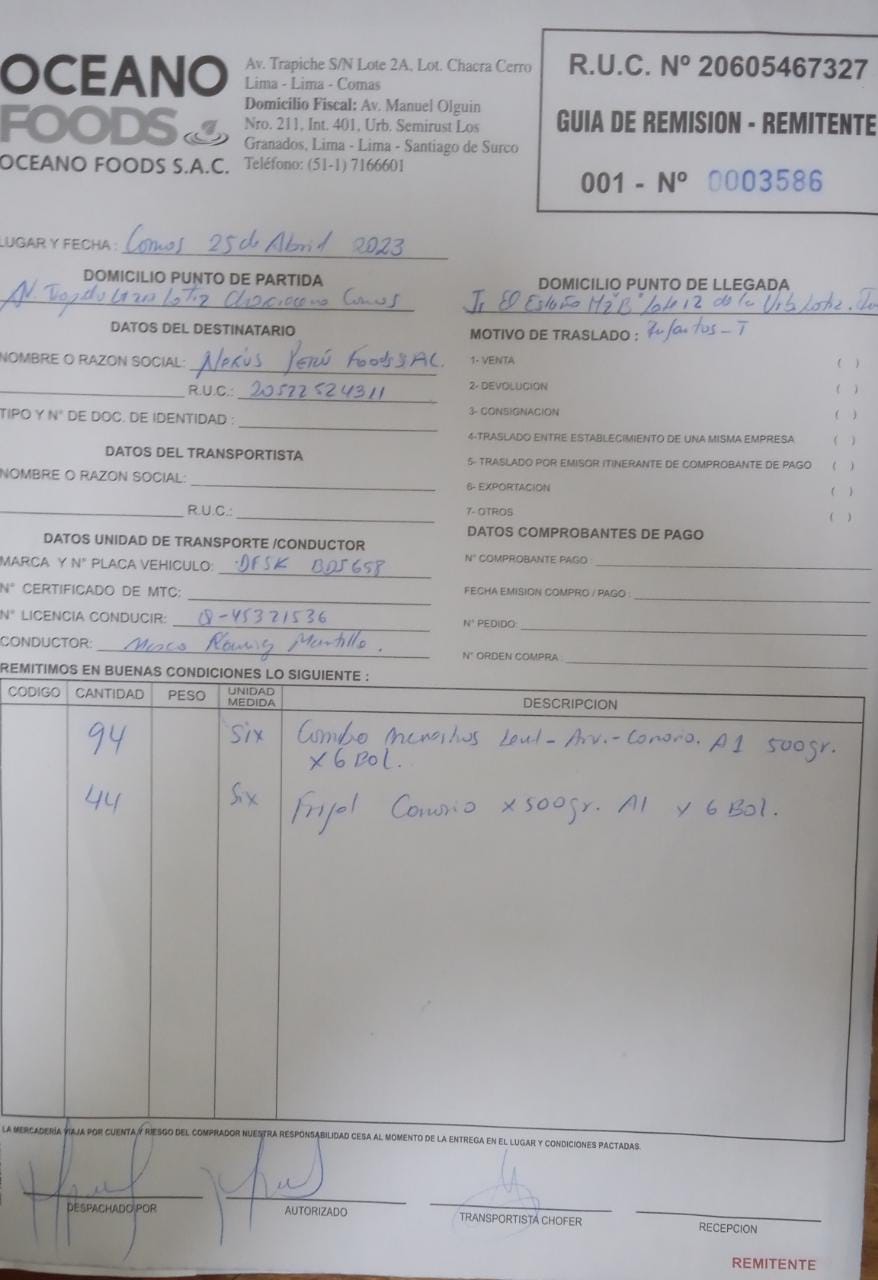 OCEANO
FOODS
OCEANO FOODS S.A.C.
Av. Trapiche S/N Lote 2A, Lot. Chacra Cerro
Lima - Lima - Comas
Domicilio Fiscal: Av. Manuel Olguin
Nro. 211, Int. 401, Urb. Semirust Los
Granados, Lima - Lima - Santiago de Surco
Teléfono: (51-1) 7166601
R.U.C. Nº 20605467327
GUIA DE REMISION - REMITENTE
001 - Nº 0003586
LUGAR Y FECHA : Comas 25 de Abril 2023
DOMICILIO PUNTO DE PARTIDA
Av. Comas
DOMICILIO PUNTO DE LLEGADA
Jr El Estaño Mz B lote 12 de la Urb Lotiz. Ind
Infantas - T
DATOS DEL DESTINATARIO
NOMBRE O RAZON SOCIAL: Nexus Perú Foods SAC.
R.U.C.: 20522524311
TIPO Y N° DE DOC. DE IDENTIDAD :
DATOS DEL TRANSPORTISTA
NOMBRE O RAZON SOCIAL:
R.U.C.:
DATOS UNIDAD DE TRANSPORTE /CONDUCTOR
MARCA Y N° PLACA VEHICULO: DFSK BDS658
N° CERTIFICADO DE MTC:
N° LICENCIA CONDUCIR: Q-45321536
CONDUCTOR: Marco
MOTIVO DE TRASLADO :
1- VENTA ( )
2- DEVOLUCION ( )
3- CONSIGNACION ( )
4-TRASLADO ENTRE ESTABLECIMIENTO DE UNA MISMA EMPRESA ( )
5- TRASLADO POR EMISOR ITINERANTE DE COMPROBANTE DE PAGO ( )
6- EXPORTACION ( )
7- OTROS ( )
DATOS COMPROBANTES DE PAGO
N° COMPROBANTE PAGO :
FECHA EMISION COMPRO / PAGO :
N° PEDIDO:
N° ORDEN COMPRA :
REMITIMOS EN BUENAS CONDICIONES LO SIGUIENTE :
CODIGO CANTIDAD PESO UNIDAD MEDIDA DESCRIPCION
94 Six Combo Menestras Lent - Arv. - Canario. A1 500gr.
x 6 Bol.
44 Six Frijol Canario x 500gr. A1 x 6 Bol.
LA MERCADERÍA VIAJA POR CUENTA Y RIESGO DEL COMPRADOR NUESTRA RESPONSABILIDAD CESA AL MOMENTO DE LA ENTREGA EN EL LUGAR Y CONDICIONES PACTADAS.
DESPACHADO POR
AUTORIZADO
TRANSPORTISTA CHOFER
RECEPCION
REMITENTE